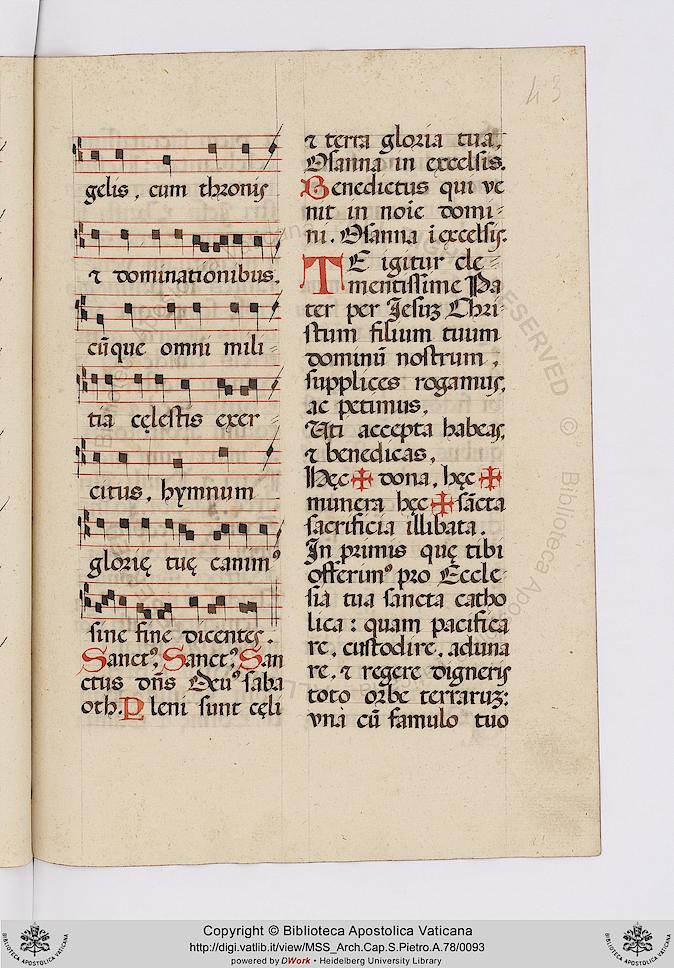 43
gelis, cum thronis
⁊ dominationibus,
cūque omni mili-
tia cęlestis exer-
citus, hymnum
glorię tuę canimꝰ
sine fine dicentes.
Sanctꝰ, Sanctꝰ, San
ctus dn̄s Deuꝰ saba
oth. Pleni sunt cęli
⁊ terra gloria tua,
Osanna in excelsis.
Benedictus qui ve
nit in noīe domi-
ni. Osanna ī excelsis.
TE igitur cle-
mentissime Pa
ter per Jesuꝫ Chri
stum filium tuum
dominū nostrum,
supplices rogamus,
ac petimus,
Uti accepta habeas,
⁊ benedicas,
Hęc ✠ dona, hęc ✠
munera hęc ✠ sācta
sacrificia illibata.
In primis quę tibi
offerimꝰ pro Eccle-
sia tua sancta catho
lica: quam pacifica
re, custodire, aduna
re, ⁊ regere digneris
toto orbe terraruꝫ:
vna cū famulo tuo
Copyright © Biblioteca Apostolica Vaticana
http://digi.vatlib.it/view/MSS_Arch.Cap.S.Pietro.A.78/0093
powered by DWork • Heidelberg University Library
BIBLIOTECA APOSTOLICA VATICANA
BIBLIOTECA APOSTOLICA VATICANA